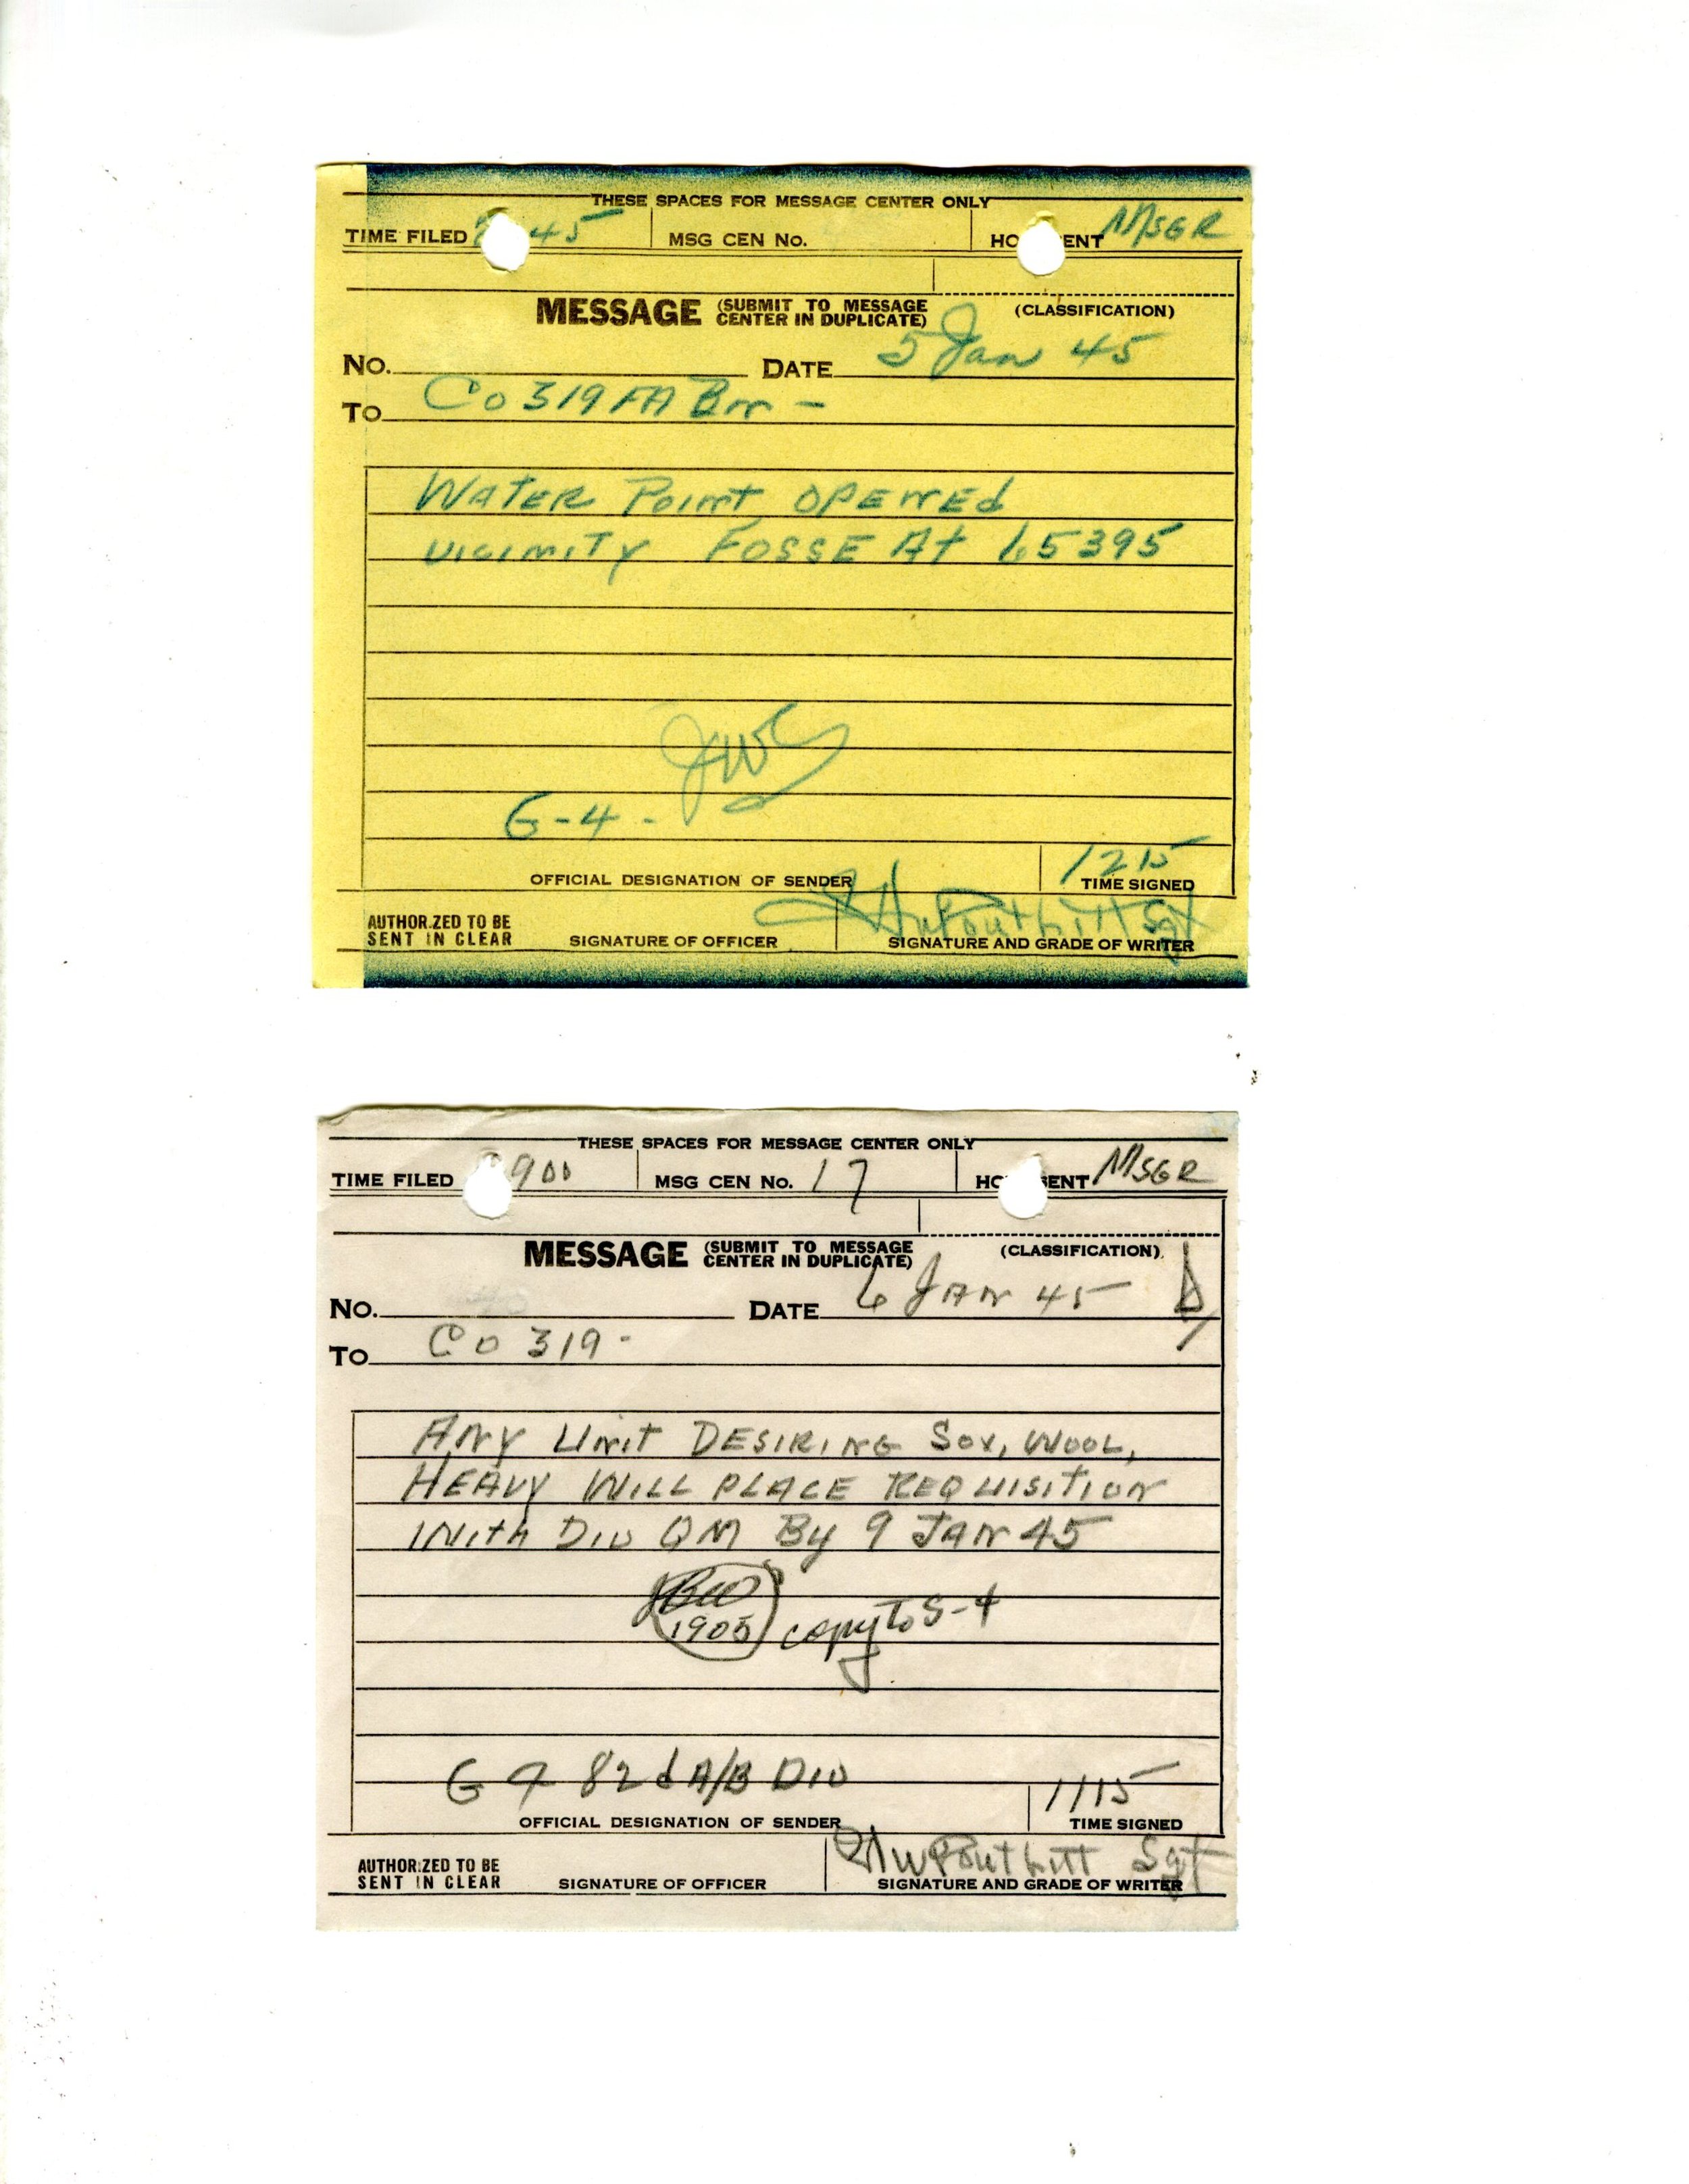 THESE SPACES FOR MESSAGE CENTER ONLY
TIME FILED 45 MSG CEN No. HO ENT MSGR
MESSAGE (SUBMIT TO MESSAGE CENTER IN DUPLICATE) (CLASSIFICATION)
No. DATE 5 Jan 45
To Co 319 FA Bn -
WATER Point OPENEd
VICINITY FOSSE At 65395
JWC
G-4 -
OFFICIAL DESIGNATION OF SENDER 1215 TIME SIGNED
AUTHORIZED TO BE SENT IN CLEAR SIGNATURE OF OFFICER Sgt SIGNATURE AND GRADE OF WRITER
THESE SPACES FOR MESSAGE CENTER ONLY
TIME FILED 900 MSG CEN No. 17 HO SENT MSGR
MESSAGE (SUBMIT TO MESSAGE CENTER IN DUPLICATE) (CLASSIFICATION)
No. DATE 6 JAN 45
To Co 319 -
ANY Unit DESIRING Sox, WOOL,
HEAVY WILL PLACE REQUISITION
With DIV QM By 9 JAN 45
1905 copy To S-4
G 4 82d A/B DIV
OFFICIAL DESIGNATION OF SENDER 1115 TIME SIGNED
AUTHORIZED TO BE SENT IN CLEAR SIGNATURE OF OFFICER Sgt SIGNATURE AND GRADE OF WRITER